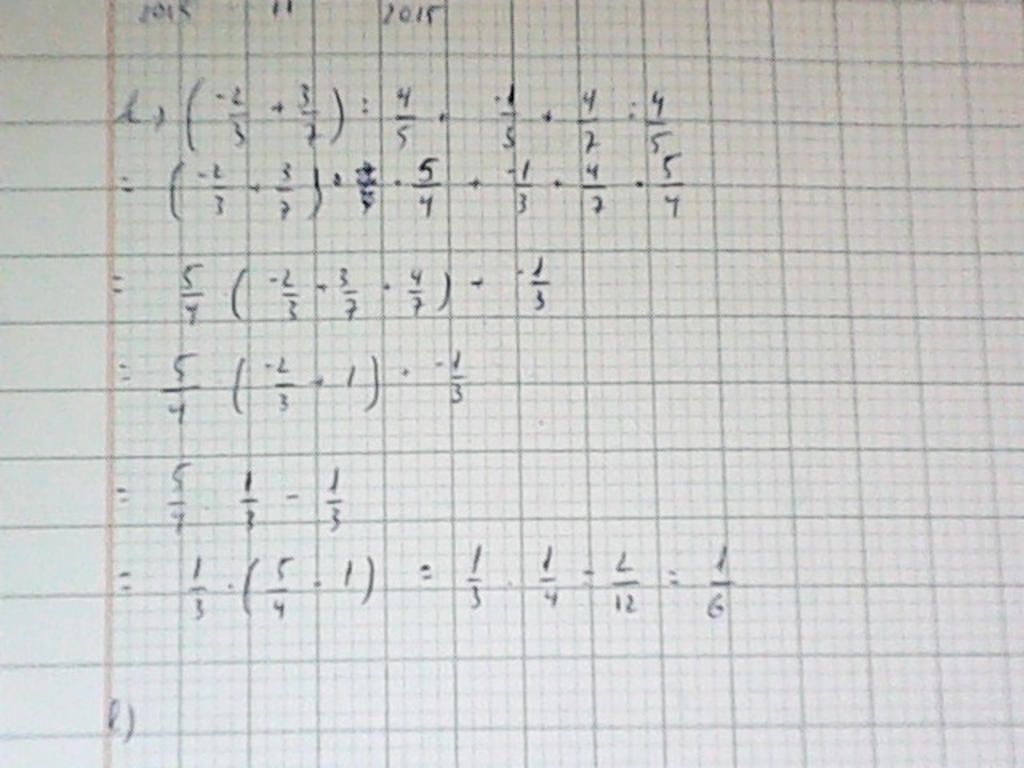 2015 11 2015
b) (-2/3 + 3/7) : 4/5 + -1/3 + 4/7 : 4/5
= (-2/3 + 3/7) · 5/4 + -1/3 + 4/7 · 5/4
= 5/4 (-2/3 + 3/7 + 4/7) + -1/3
= 5/4 (-2/3 + 1) + -1/3
= 5/4 1/3 - 1/3
= 1/3 · (5/4 - 1) = 1/3 · 1/4 = 2/12 = 1/6